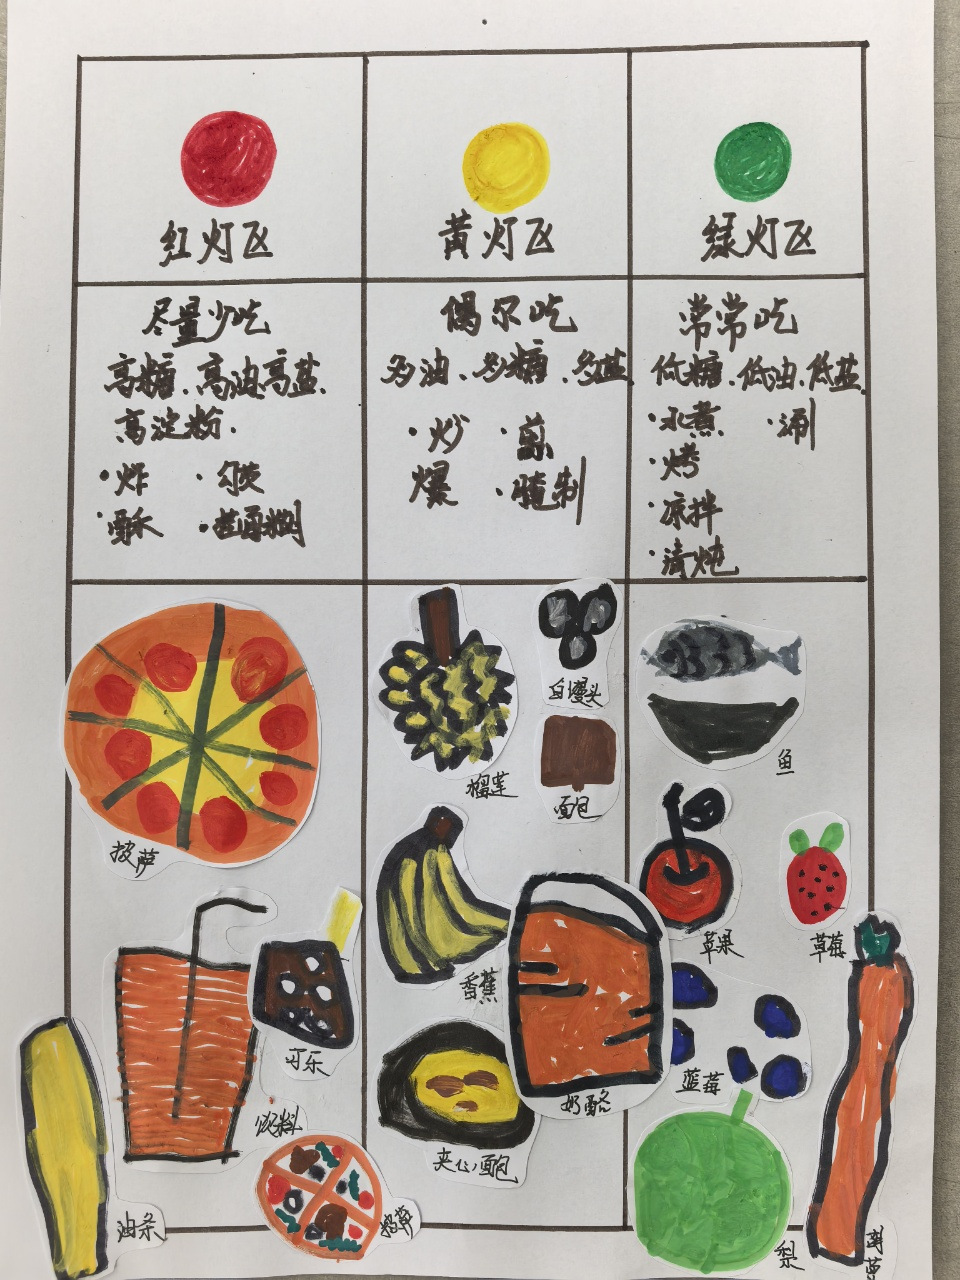 红灯区
黄灯区
绿灯区
尽量少吃
高糖、高油高盐、
高淀粉.
·炸 ·勾芡
·酥 ·挂面糊
偶尔吃
多油、多糖、多盐
·炒 ·煎
爆 ·腌制
常常吃
低糖.低油.低盐
·水煮 ·涮
·烤
·凉拌
·清炖
披萨
可乐
饮料
油条
披萨
榴莲
白馒头
面包
香蕉
奶酪
夹心面包
鱼
苹果
草莓
蓝莓
梨